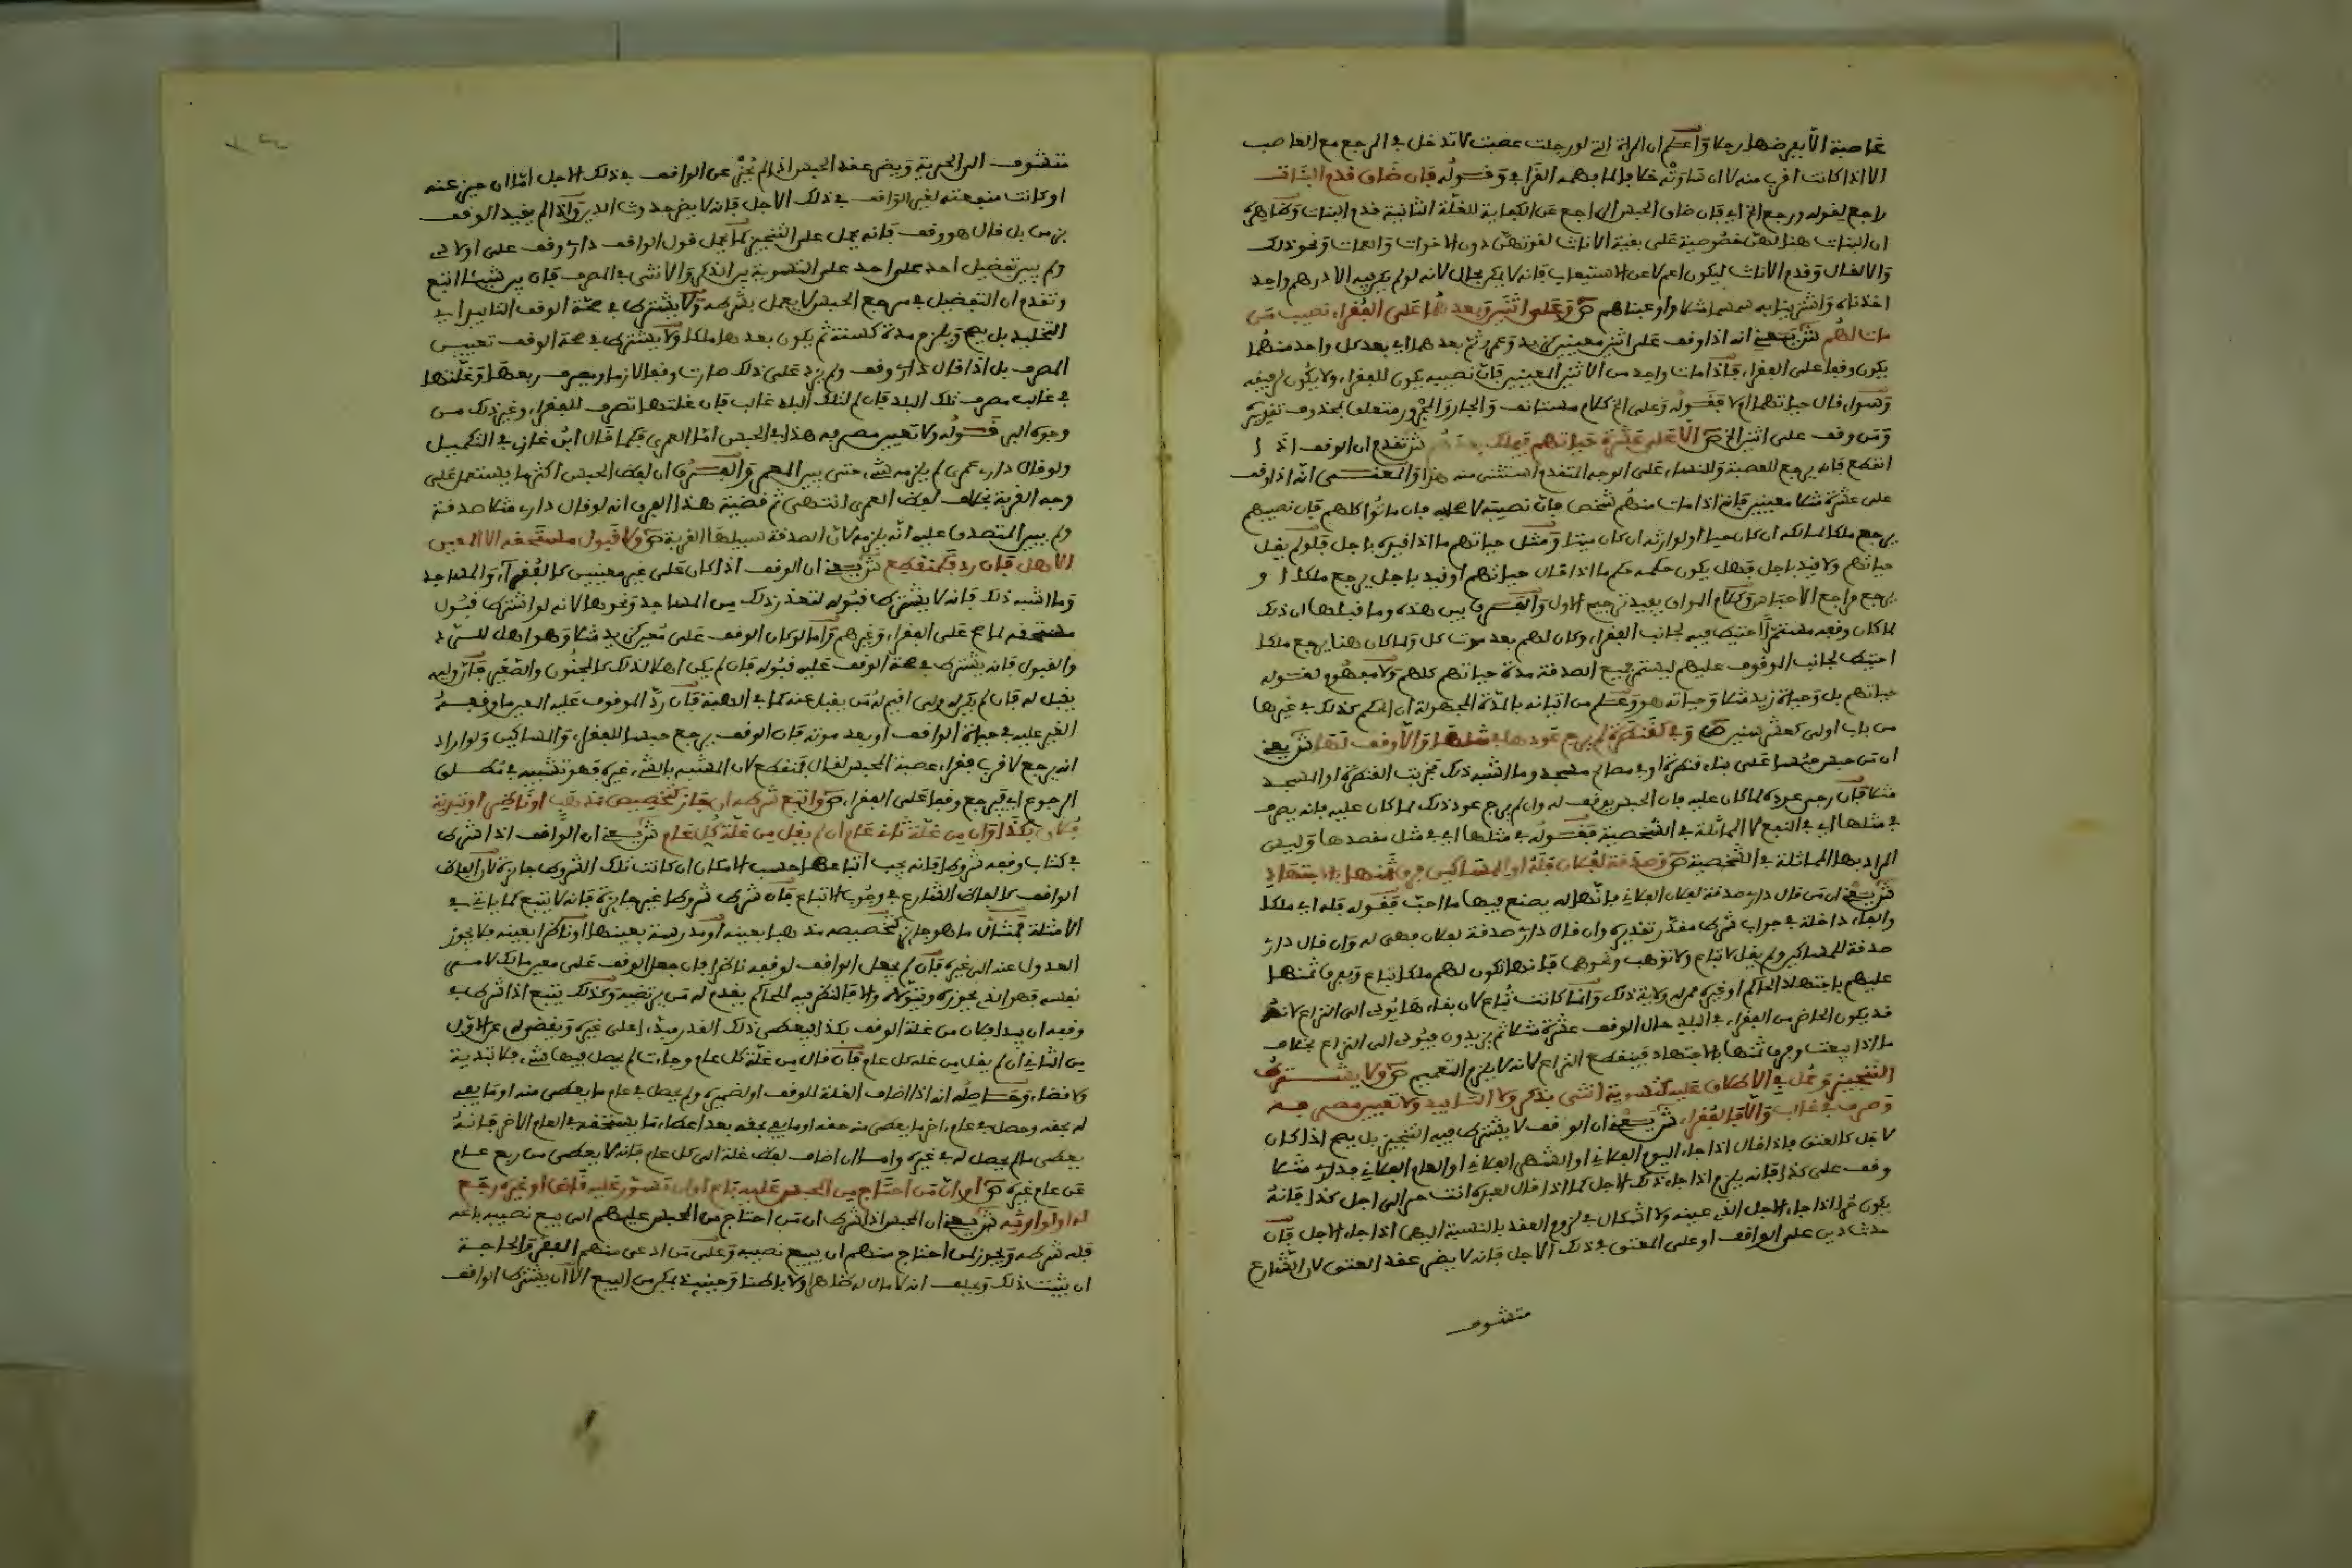 عاصبة الا بفرضها رجلا واعلم ان المراة التي لو رجلت عصبت لا تدخل في المرجع مع العاصب
الا اذا كانت اقرب منه لا ان ساوته خلافا لما يوهمه القرافي وقوله فان ضاق قدم البنات
راجع لقوله ورجع الخ اي فان ضاق الحبس الراجع عن الكفاية للغلة الناشية قدم البنات وظاهره
ان البنات هنا لهن خصوصية على بقية الاناث لقوتهن دون الاخوات والعمات ونحو ذلك
والا لقال وقدم الاناث ليكون اعم لا عن الاستيعاب فانه لا يمكن بحال لانه لو لم يكن فيه الا درهم واحد
اخذناه واشترينا به سمسما مثلا واوعبناهم ص وعلى اثنين وبعدهما على الفقراء نصيب من
مات لهم ش يعني انه اذا وقف على اثنين معينين كزيد وعمرو ثم بعدهما اي بعد كل واحد منهما
يكون وقفا على الفقراء فاذا مات واحد من الاثنين المعينين فان نصيبه يكون للفقراء ولا يكون لرفيقه
وسواء قال حياتهما ام لا فقوله وعلى الخ كلام مستانف والجار والمجرور متعلق بمحذوف تقديره
ومن وقف على اثنين الخ ص الا على عشرة حياتهم فيملك بعدهم ش تقدم ان الوقف اذا
انقطع فانه يرجع للعصبة وللنساء على الوجه المتقدم استثنى منه هذا والمعنى انه اذا وقف
على عشرة مثلا معينين فانه اذا مات منهم شخص فان نصيبه لاصحابه فان ماتوا كلهم فان نصيبهم
يرجع ملكا لمالكه ان كان حيا او لوارثه ان كان ميتا ومثل حياتهم ما اذا قيده باجل فلو لم يقل
حياتهم ولا قيد باجل فهل يكون حكمه حكم ما اذا قال حياتهم او قيد باجل يرجع ملكا او
يرجع مراجع الاحباس وكلام المواق يفيد ترجيح الاول والفرق بين هذه وما قبلها ان ذلك
لما كان وقفه مستمرا احتيط فيه لجانب الفقراء وكان لهم بعد موت كل ولما كان هنا يرجع ملكا
احتيط لجانب الموقوف عليهم ليستمر جميع الصدقة مدة حياتهم كلهم ولا مفهوم لقوله
حياتهم بل وحياة زيد مثلا وحياته هو وعلم من اتيانه بالمدة المجهولة ان الحكم كذلك في غيرها
من باب اولى كعشر سنين ص وفي كقنطرة لم يرج عودها في مثلها والا وقف لها ش يعني
ان من حبس حبسا على بناء قنطرة او في مصالح مسجد وما اشبه ذلك فخربت القنطرة او المسجد
مثلا فان رجي عوده لما كان عليه فان الحبس يوقف له وان لم يرج عود ذلك لما كان عليه فانه يصرف
في مثلها اي في النفع لا المماثلة في الشخصية فقوله في مثلها اي في مثل مقصدها وليس
المراد بها المماثلة في الشخصية ص وصدقة لفلان فله او للمساكين فرق ثمنها بالاجتهاد
ش يعني ان من قال داري صدقة لفلان الفلاني فانها له يصنع فيها ما احب فقوله فله اي ملكا
والفاء داخلة في جواب شرط مقدر تقديره وان قال داري صدقة لفلان فهي له وان قال داري
صدقة للمساكين ولم يقل لا تباع ولا توهب ونحوهما فانها تكون لهم ملكا تباع ويفرق ثمنها
عليهم باجتهاد الحاكم او غيره ممن له ولاية ذلك وانما كانت تباع لان بقاءها يؤدى الى النزاع لانه
قد يكون الحاضر من الفقراء في البلد حال الوقف عشرة مثلا ثم يزيدون فيؤدى الى النزاع بخلاف
ما اذا بيعت وفرق ثمنها بالاجتهاد فينقطع النزاع لانه لا يلزم التعميم ص ولا يشترط
التنجيز وحمل في الاطلاق عليه كتسوية انثى بذكر ولا التابيد ولا تعيين مصرفه
وصرف في غالب والا فالفقراء ش يعني ان الوقف لا يشترط فيه التنجيز بل يصح اذا كان
لاجل كالعتق فاذا قال اذا جاء اليوم الفلاني او الشهر الفلاني او العام الفلاني فداري مثلا
وقف على كذا فانه يلزم اذا جاء ذلك الاجل كما اذا قال لعبده انت حر الى اجل كذا فانه
يكون حرا اذا جاء الاجل الذي عينه ولا اشكال في لزوم العقد بالنسبة اليهما اذا جاء الاجل فان
حدث دين على الواقف او على المعتق في ذلك الاجل فانه لا يضر عقد العتق لان الشارع
متشوف
متشوف الى الحرية ويضر عقد الحبس اذا لم يحز عن الواقف في ذلك الاجل اما ان حيز عنه
او كانت منفعته لغير الواقف في ذلك الاجل فانه لا يضر حدوث الدين واذا لم يقيد الوقف
بزمن بل قال هو وقف فانه يحمل على التنجيز كما يحمل قول الواقف داري وقف على اولادي
ولم يبين تفضيل احد على احد على التسوية بين الذكر والانثى في المصرف فان بين شيئا اتبع
وتقدم ان التفضيل في مرجع الحبس لا يعمل بشرطه ولا يشترط في صحة الوقف التابيد اي
التخليد بل يصح ويلزم مدة كسنة ثم يكون بعدها ملكا ولا يشترط في صحة الوقف تعيين
المصرف بل اذا قال داري وقف ولم يزد على ذلك صارت وقفا لازما ويصرف ريعها وغلتها
في غالب مصرف تلك البلد فان لم لتلك البلد غالب فان غلتها تصرف للفقراء وغير ذلك من
وجوه البر قوله ولا تعيين مصرفه هذا في الحبس اما العمري فكما قال ابن غازي في التكميل
ولو قال داري عمري لم يلزمه شيء حتى يبين المعمر والفرق ان لفظ الحبس اكثر ما يستعمل على
وجه القربة بخلاف لفظ العمري انتهى ثم قضية هذا الفرق انه لو قال داري مثلا صدقة
ولم يبين المتصدق عليه انه يلزمه لان الصدقة سبيلها القربة ص ولا قبول مستحقه الا المعين
الاهل فان رد فكمنقطع ش يعني ان الوقف اذا كان على غير معينين كالفقراء والمساجد
وما اشبه ذلك فانه لا يشترط قبوله لتعذر ذلك من المساجد ونحوها لانه لو اشترط قبول
مستحقه لما صح على الفقراء وغيرهم واما لو كان الوقف على معين كزيد مثلا وهو اهل للرد
والقبول فانه يشترط في صحة الوقف عليه قبوله فان لم يكن اهلا لذلك كالمجنون والصغير فان وليه
يقبل له فان لم يكن له ولي اقيم له من يقبل عنه كما في الهبة فان رد الموقوف عليه المعين ما وقفه
الغير عليه في حياة الواقف او بعد موته فان الوقف يرجع حبسا للفقراء والمساكين ولو اراد
انه يرجع لاقرب فقراء عصبة المحبس لقال فمنقطع لان المشبه بالشيء غيره فهو تشبيه في مطلق
الرجوع اي فيرجع وقفا على الفقراء ص واتبع شرطه ان جاز كتخصيص مذهب او ناظر او تبدية
فلان بكذا وان من غلة ثاني عام ان لم يقل من غلة كل عام ش يعني ان الواقف اذا شرط
في كتاب وقفه شروطا فانه يجب اتباعها حسب الامكان ان كانت تلك الشروط جايزة لان الفاظ
الواقف كالفاظ الشارع في وجوب الاتباع فان شرط شروطا غير جايزة فانه لا يتبع كما ياتي في
الامثلة فمثال ما هو جايز كتخصيصه مذهبا بعينه او مدرسة بعينها او ناظرا بعينه فلا يجوز
العدول عنه الى غيره فان لم يجعل الواقف لوقفه ناظرا فان جعل الوقف على معين مالك لامر
نفسه فهو الذي يحوزه ويتولاه والا فالنظر فيه للحاكم يقدم له من يرتضيه وكذلك يتبع اذا شرط في
وقفه ان يبدا فلان من غلة الوقف بكذا فيعطى ذلك القدر مبدا على غيره وبفضوله عن الاول
من الثاني ان لم يقل من غلة كل عام فان قال من غلة كل عام وجاءت لم يحصل فيها شيء فلا تبدية
ولا قضاء وحاصله انه اذا اضاف الغلة للوقف او لضميره ولم يحصل في عام ما يعطى منه او ما يفي
له بحقه وحصل في عام اخر ما يعطى منه حقه او ما يفي بحقه بعد اعطاء ما يستحقه في العام الاخر فانه
يعطى ما لم يحصل له في غيره واما ان اضاف لفظ غلة الى كل عام فانه لا يعطى من ريع عام
عن عام غيره ص او ان من احتاج من المحبس عليه باع او ان تسور عليه قاض او غيره رجع
له او لوارثه ش يعني ان المحبس اذا شرط ان من احتاج من المحبس عليهم الى بيع نصيبه باعه
فله شرطه ويجوز لمن احتاج منهم ان يبيع نصيبه وعلى من ادعى منهم الفقر والحاجة
ان يثبت ذلك ويحلف انه لا مال له ظاهرا ولا باطنا وحينئذ يمكن من البيع الا ان يشترط الواقف